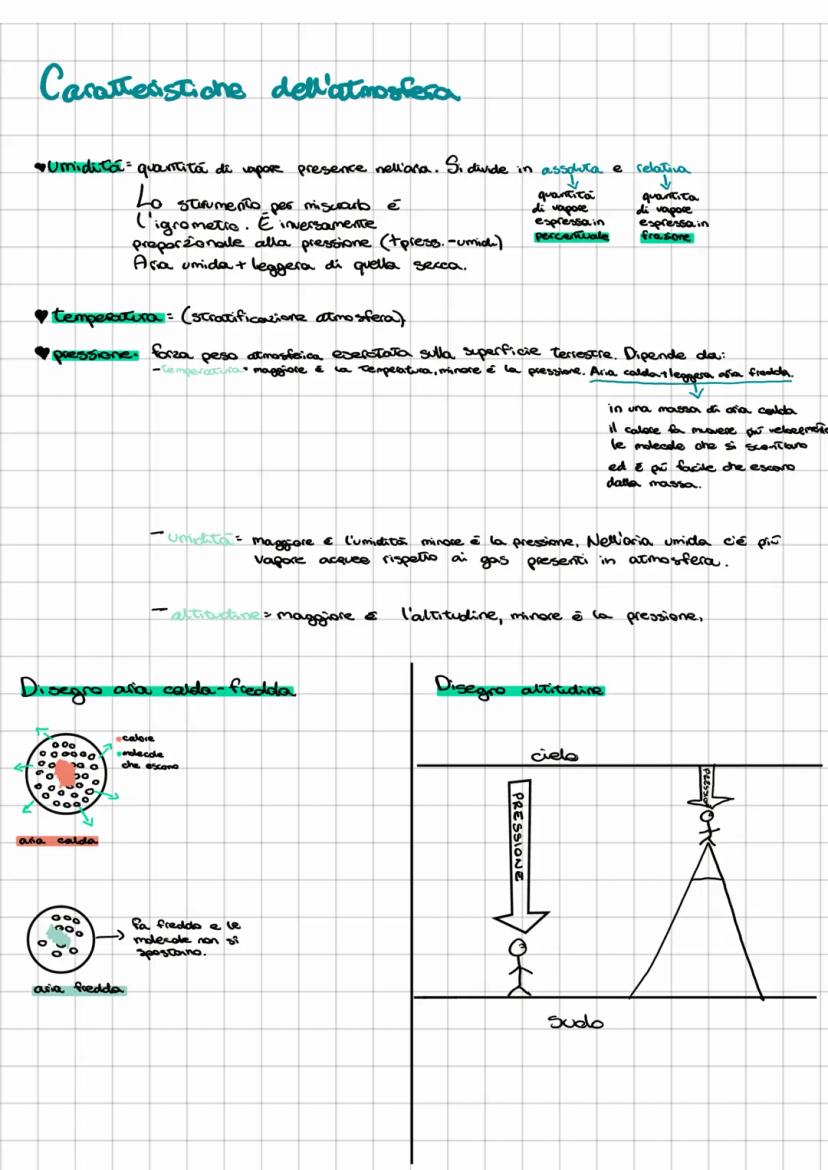 Caratteristiche dell'atmosfera
♥umidità = quantità di vapore presence nell'aria. Si divide in assoluta e relativa
quantità
di vapore
espressa in
percentuale
quantita
di vapore
espressa in
frazione
Lo strumento per misurarlo é
l'igrometro. É inversamente
proporzionale alla pressione (+press.-umid)
Aria umida + leggera di quella secca.
♥ temperatura = (stratificazione atmosfera)
♥ pressione= forza peso atmosferica esercitata sulla superficie terrestre. Dipende da:
-temperatura= maggiore é la temperatura, minore é la pressione. Aria calda+leggera aria fredda.
in una massa di aria calda
il calore fa muovere piú velocemente
le molecole che si scontrano
ed é piú facile che escano
dalla massa.
- umidità = maggiore é l'umidità minore é la pressione. Nell'aria umida c'é piú
vapore acqueo rispetto ai gas presenti in atmosfera.
- altitudine = maggiore é l'altitudine, minore é la pressione.
Disegno aria calda-fredda
calore
molecole
che escono
aria calda
fa freddo e le
molecole non si
spostano.
aria fredda
Disegno altitudine
cielo
PRESSIONE
PRESSIONE
Suolo